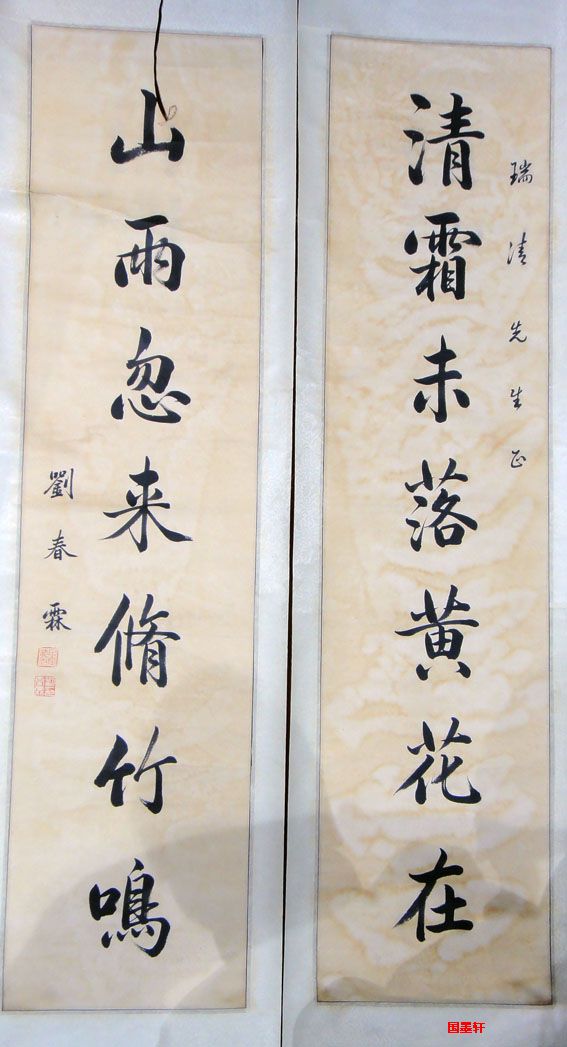 瑞清先生正
清霜未落黄花在
山雨忽来脩竹鳴
劉春霖
国墨轩